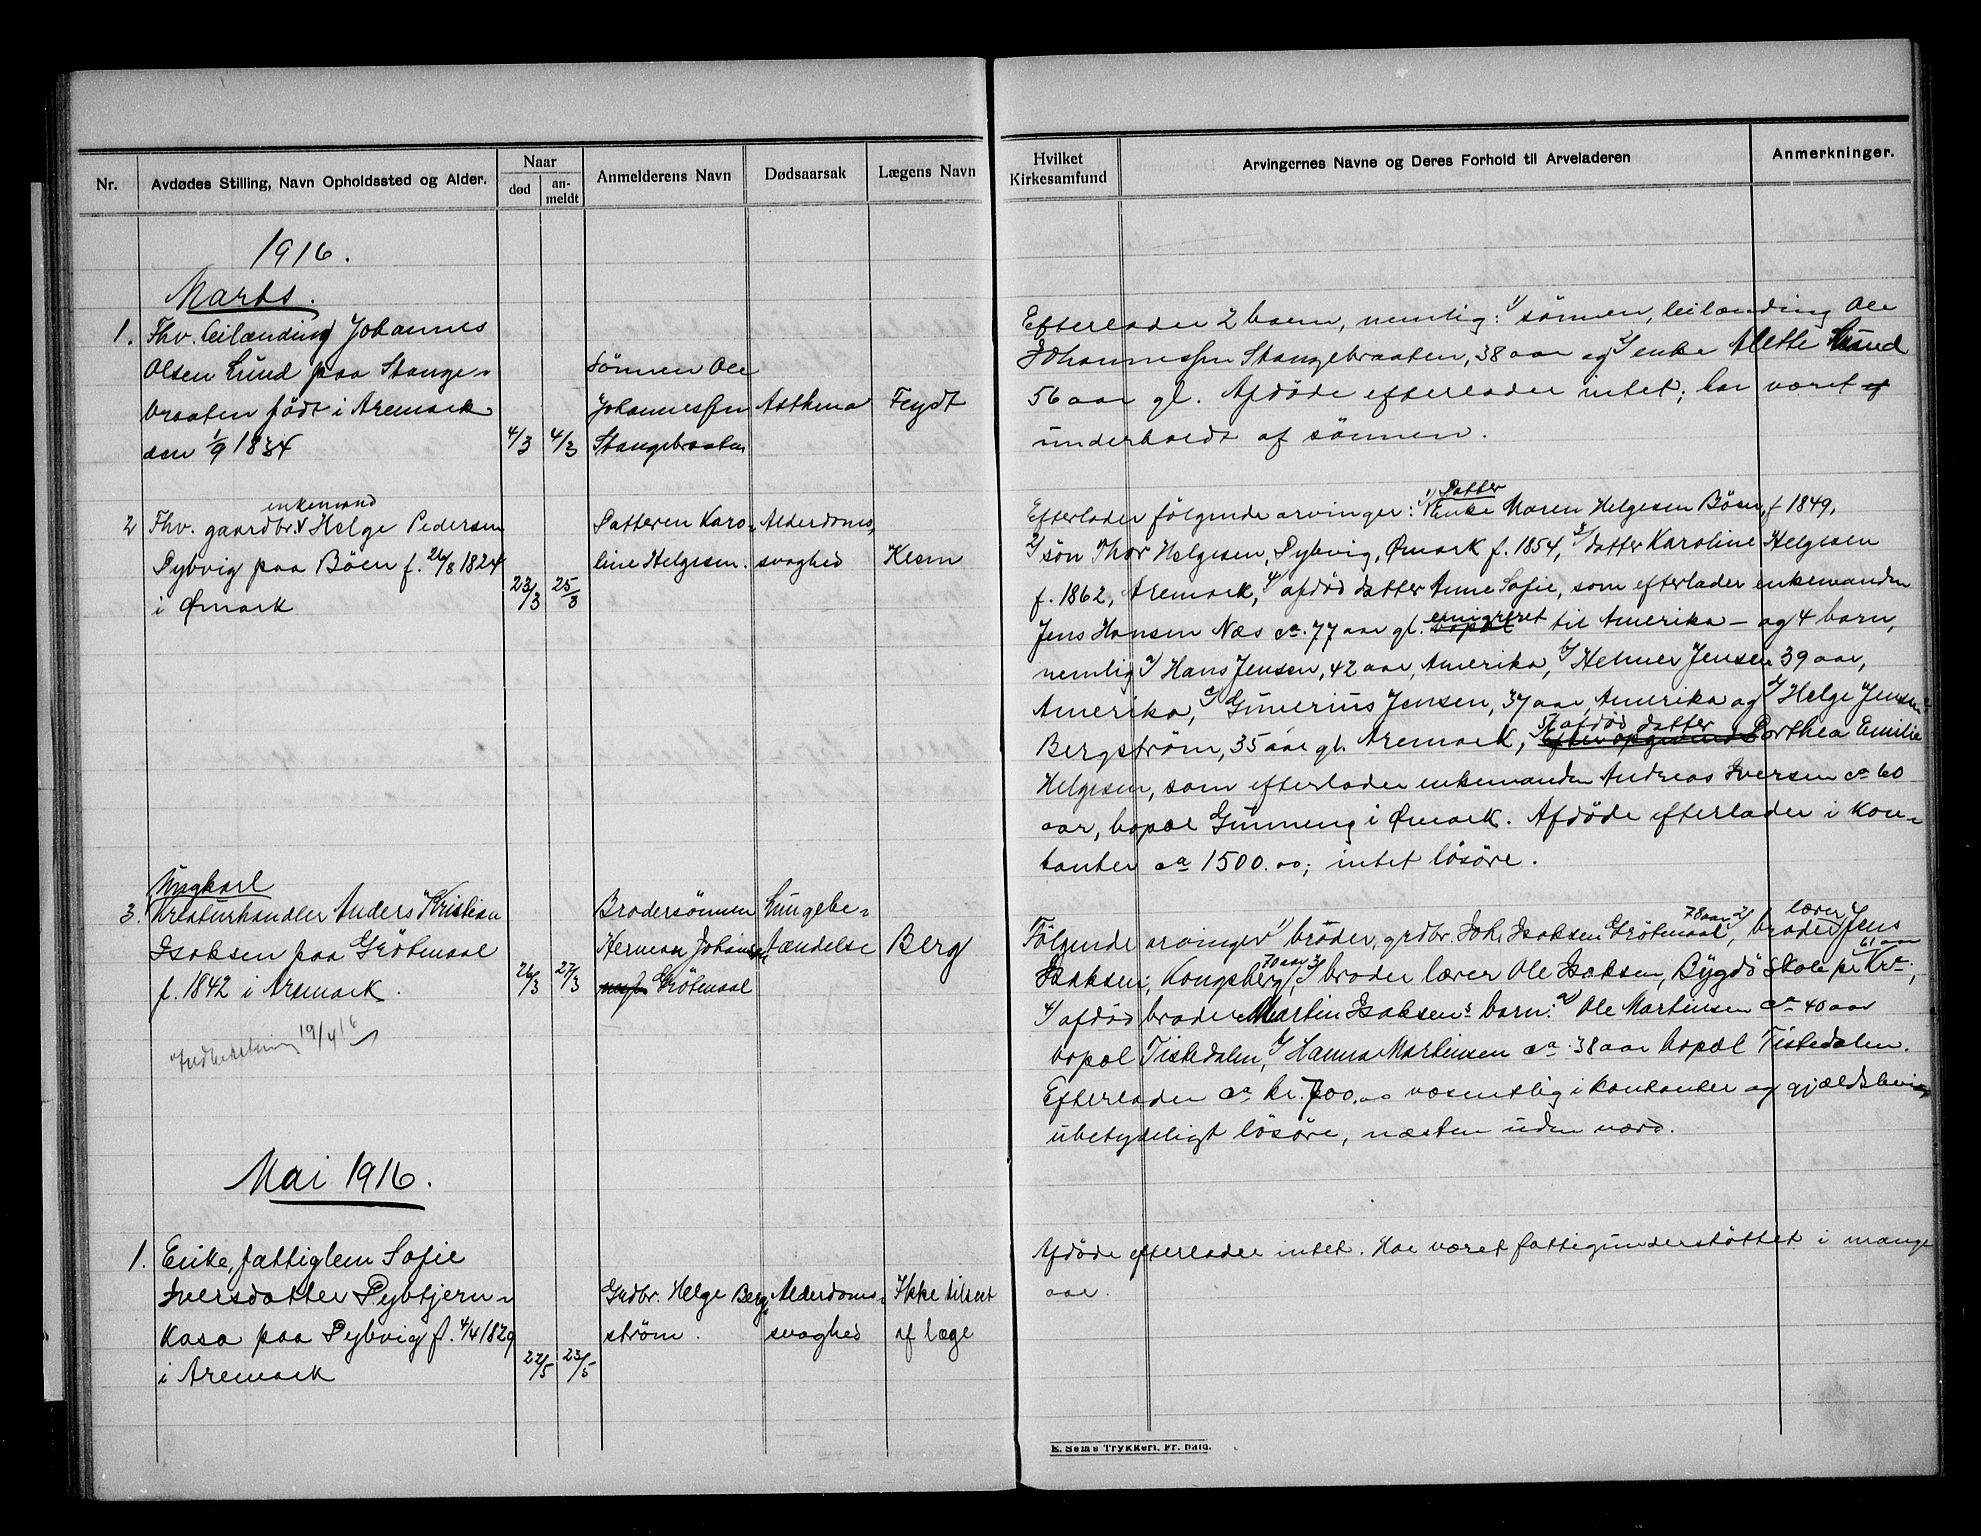 Nr.
Avdødes Stilling, Navn Opholdssted og Alder.
Naar
død
an-
meldt
Anmelderens Navn
Dødsaarsak
Lægens Navn
Hvilket
Kirkesamfund
Arvingernes Navne og Deres Forhold til Arveladeren
Anmerkninger.
1916.
Marts.
1. Fhv. leilænding Johannes
Olsen Lund paa Stange-
braaten født i Aremark
den 1/9 1834
4/3
4/3
Sønnen Ole
Johannessen
Stangebraaten
Asthma
Feydt
Efterlader 2 barn, nemlig: 1/ sønnen, leilænding Ole
Johannessen Stangebraaten, 38 aar og 2/ enke Alette Lund
56 aar gl. Afdøde efterlader intet; har været
underholdt af sønnen.
enkemand
2 Fhv. gaardbr. Helge Pedersen
Dybvig paa Böen f. 26/8 1824
i Ømark
23/3
25/3
Datteren Karo-
line Helgesen.
Alderdoms-
svaghed
Kiem
1) Datter
Efterlader følgende arvinger: Enke Maren Helgesen Böen, f 1849,
2/ søn Thor Helgesen, Dybvig, Ømark f. 1854, 3/ datter Karoline Helgesen
f. 1862, Aremark, 4/ afdød datter Anne Sofie, som efterlader enkemanden
emigreret
Jens Hansen Næs ca. 77 aar gl. bopæl til Amerika – og 4 barn,
nemlig a/ Hans Jensen, 42 aar, Amerika, b/ Helmer Jensen 39 aar,
Amerika, c/ Gunerius Jensen, 37 aar, Amerika og d/ Helge Jensen-
5/ afdød datter
Bergstrøm, 35 aar gl. Aremark, Dorthea Emilie
Helgesen, som efterlader enkemanden Andreas Iversen ca 60
aar, bopæl Gunneng i Ømark. Afdøde efterlader i kon-
tanter ca 1500.00; intet løsøre.
Ungkarl
3. Kreaturhandler Anders Kristian
Isaksen paa Grötmaal
f. 1842 i Aremark.
26/3
27/3
Brodersønnen
Herman Johan-
Grötmaal
Lungebe-
tændelse
Berg
19/4 16
78 aar 2/ lærer
Følgende arvinger 1) broder, grdbr. Joh. Isaksen Grötmaal, broder Jens
70 aar 3/ 61 aar
Isaksen, Kongsberg, broder lærer Ole Isaksen, Bygdö Skole pr Kr.a,
4/ afdød broder Martin Isaksens barn: a/ Ole Martinsen ca 40 aar
bopæl Tistedalen, b/ Hanna Martinsen ca. 38 aar bopæl Tistedalen.
Efterlader ca kr. 700.00 væsentlig i kontanter og gjældsbevis
ubetydeligt løsøre, næsten uden værd.
Mai 1916.
1. Enke, fattiglem Sofie
Iversdatter Dybtjern-
kasa paa Dybvig f. 4/4 1829
i Aremark
22/5
23/5
Grdbr. Helge Berg-
strøm.
Alderdoms-
svaghed
Ikke tilseet
af læge
Afdøde efterlader intet. Har været fattigunderstøttet i mange
aar.
E. Sem's Trykkeri, Fr.hald.